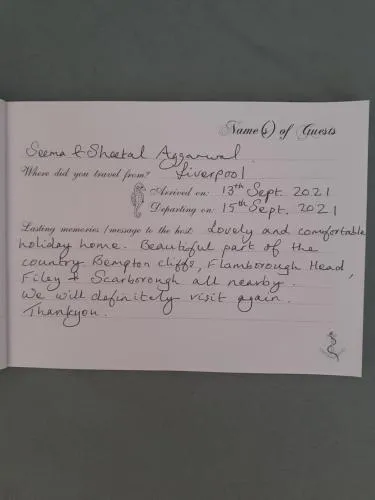 Name(s) of Guests
Seema & Sheetal Aggarwal
Where did you travel from? Liverpool
Arrived on: 13th Sept. 2021
Departing on: 15th Sept. 2021
Lasting memories / message to the host Lovely and comfortable
holiday home. Beautiful part of the
country Bempton cliffs, Flamborough Head,
Filey & Scarborough all nearby.
We will definitely visit again.
Thankyou.